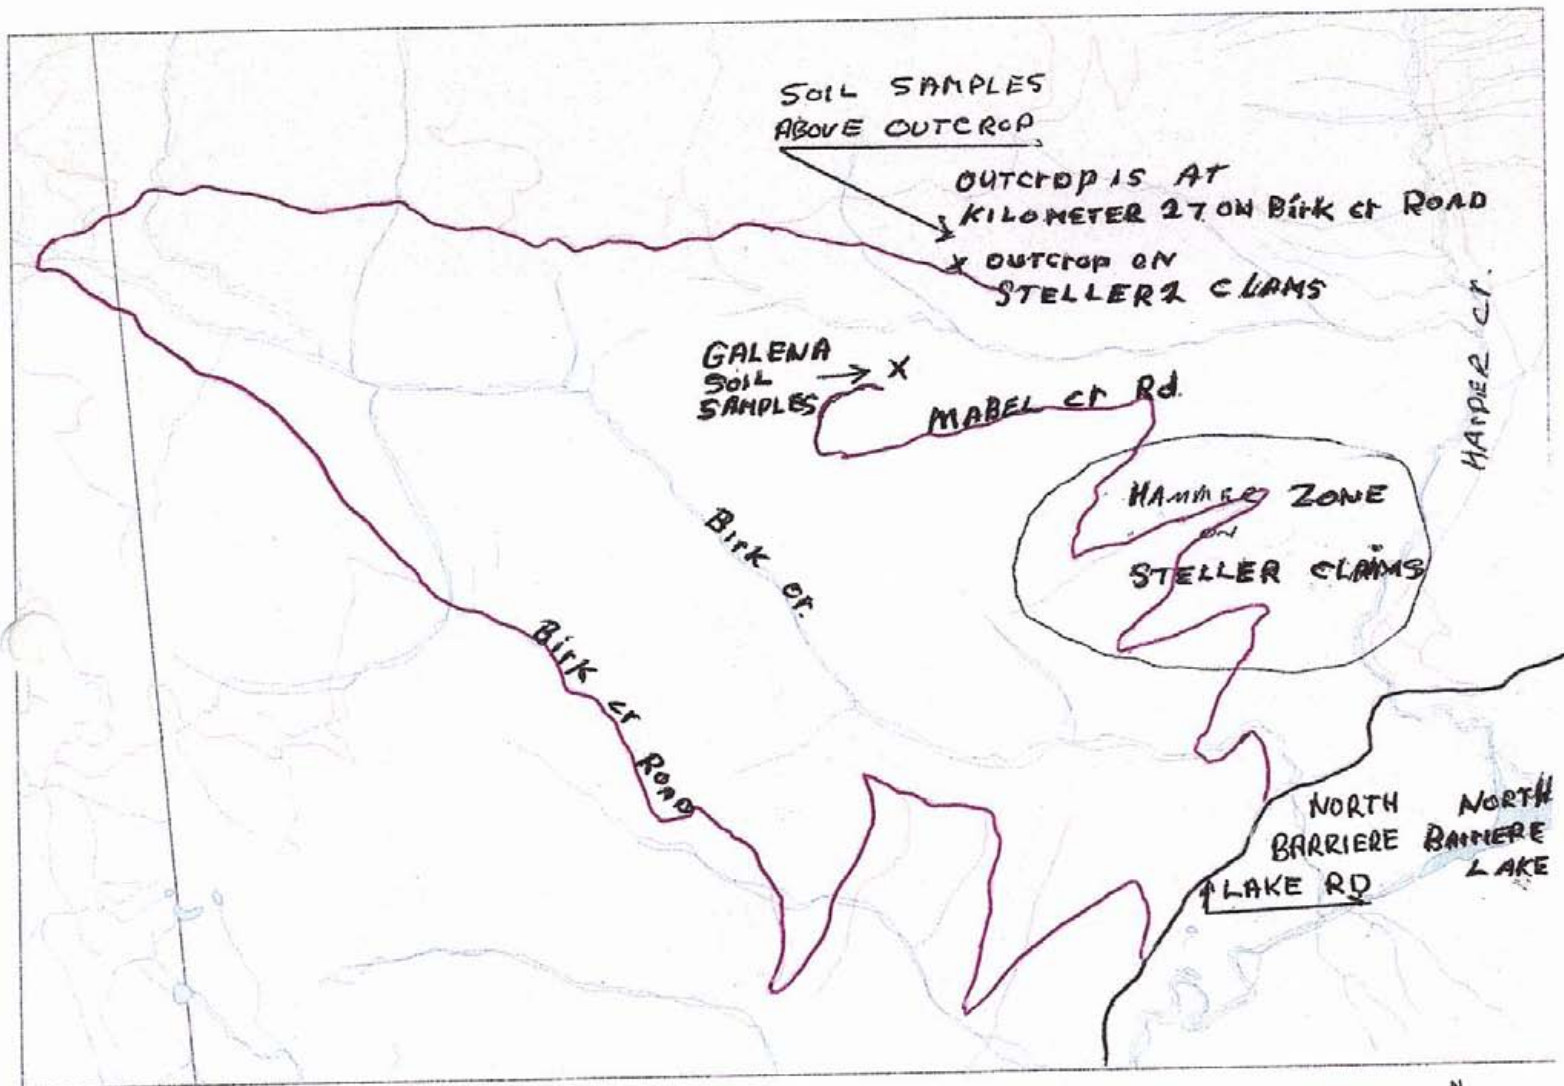 SOIL SAMPLES
ABOVE OUTCROP
OUTCrOP IS AT
KILOMETER 27 ON Birk cr ROAD
X OUTCrOP ON
STELLER 2 CLAMS
HARPER cr.
GALENA
SOIL
SAMPLES
X
MABEL cr Rd.
HAMMER ZONE
ON
STELLER CLAIMS
Birk cr.
Birk cr ROAD
NORTH
BARRIERE
LAKE RD
NORTH
BARRIERE
LAKE
N